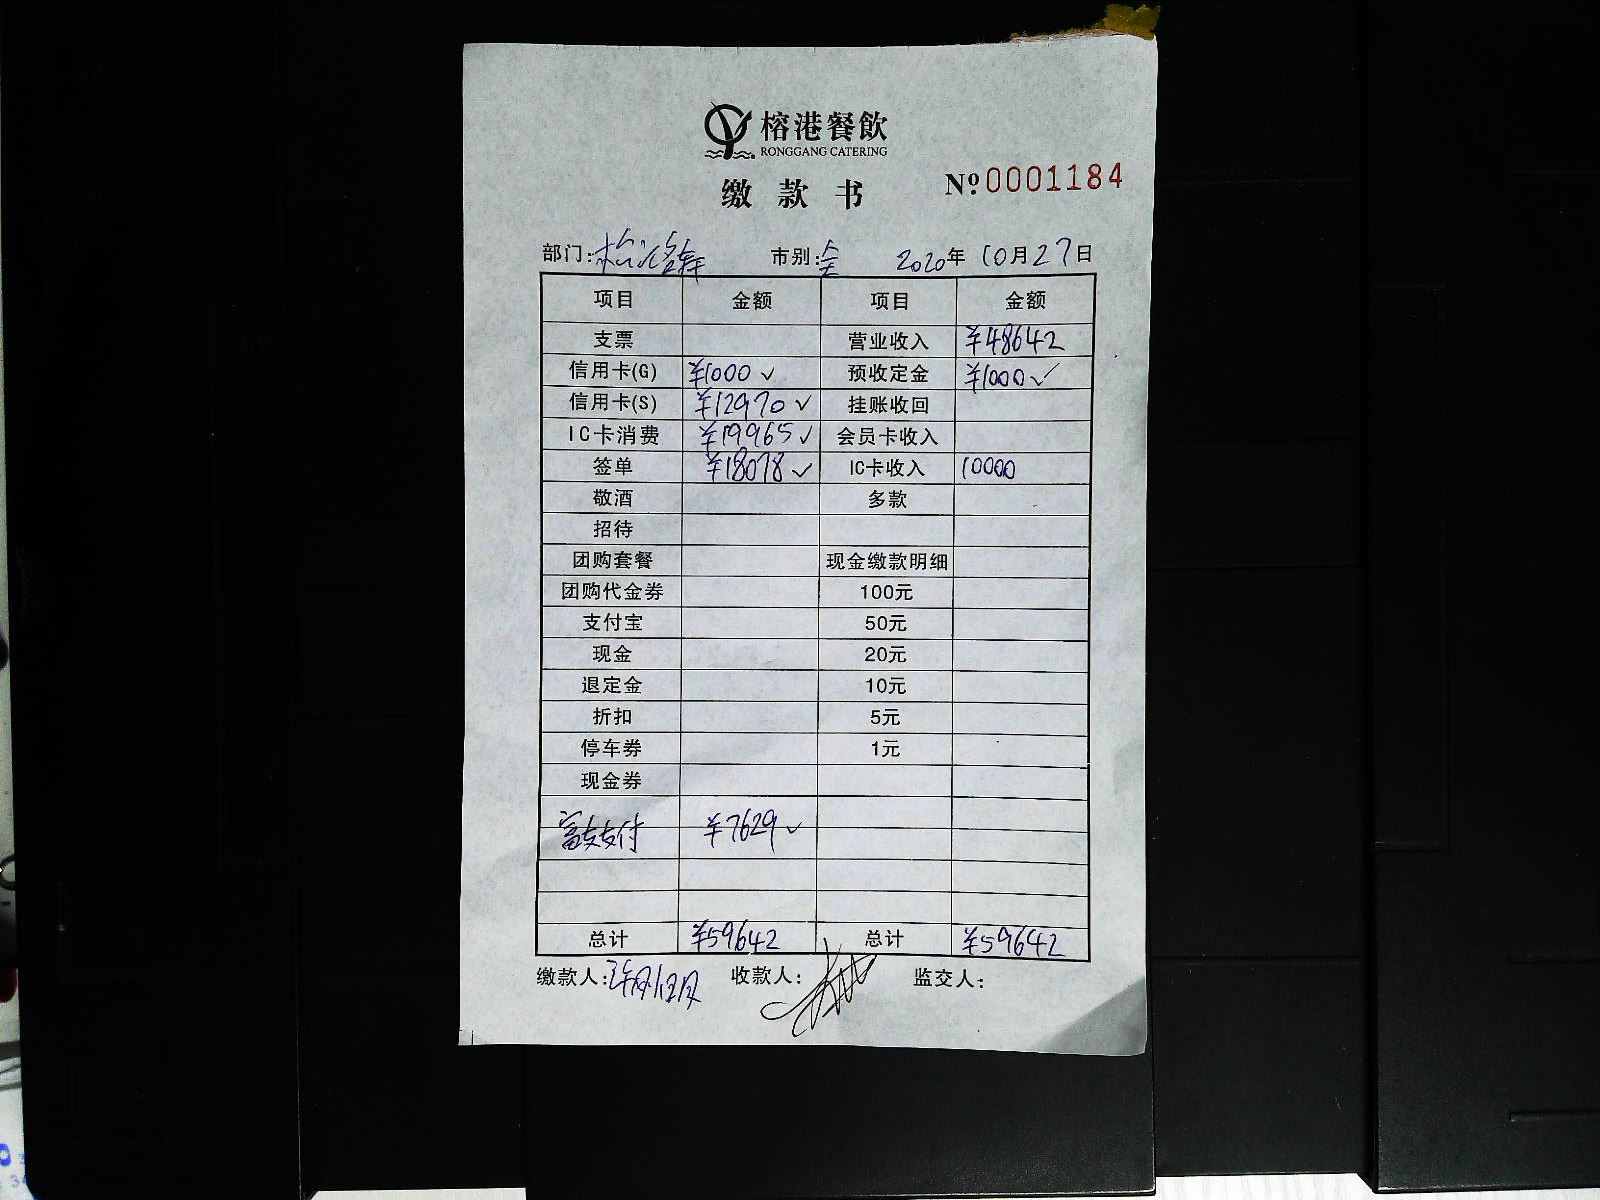 榕港餐飲
RONGGANG CATERING
缴款书 №0001184
部门: 市别:全 2020年10月27日
项目 金额 项目 金额
支票 营业收入 ¥48642
信用卡(G) ¥1000✓ 预收定金 ¥1000✓
信用卡(S) ¥12970✓ 挂账收回
IC卡消费 ¥19965✓ 会员卡收入
签单 ¥18078✓ IC卡收入 10000
敬酒 多款
招待
团购套餐 现金缴款明细
团购代金券 100元
支付宝 50元
现金 20元
退定金 10元
折扣 5元
停车券 1元
现金券
富友支付 ¥7629✓
总计 ¥59642 总计 ¥59642
缴款人: 收款人: 监交人: